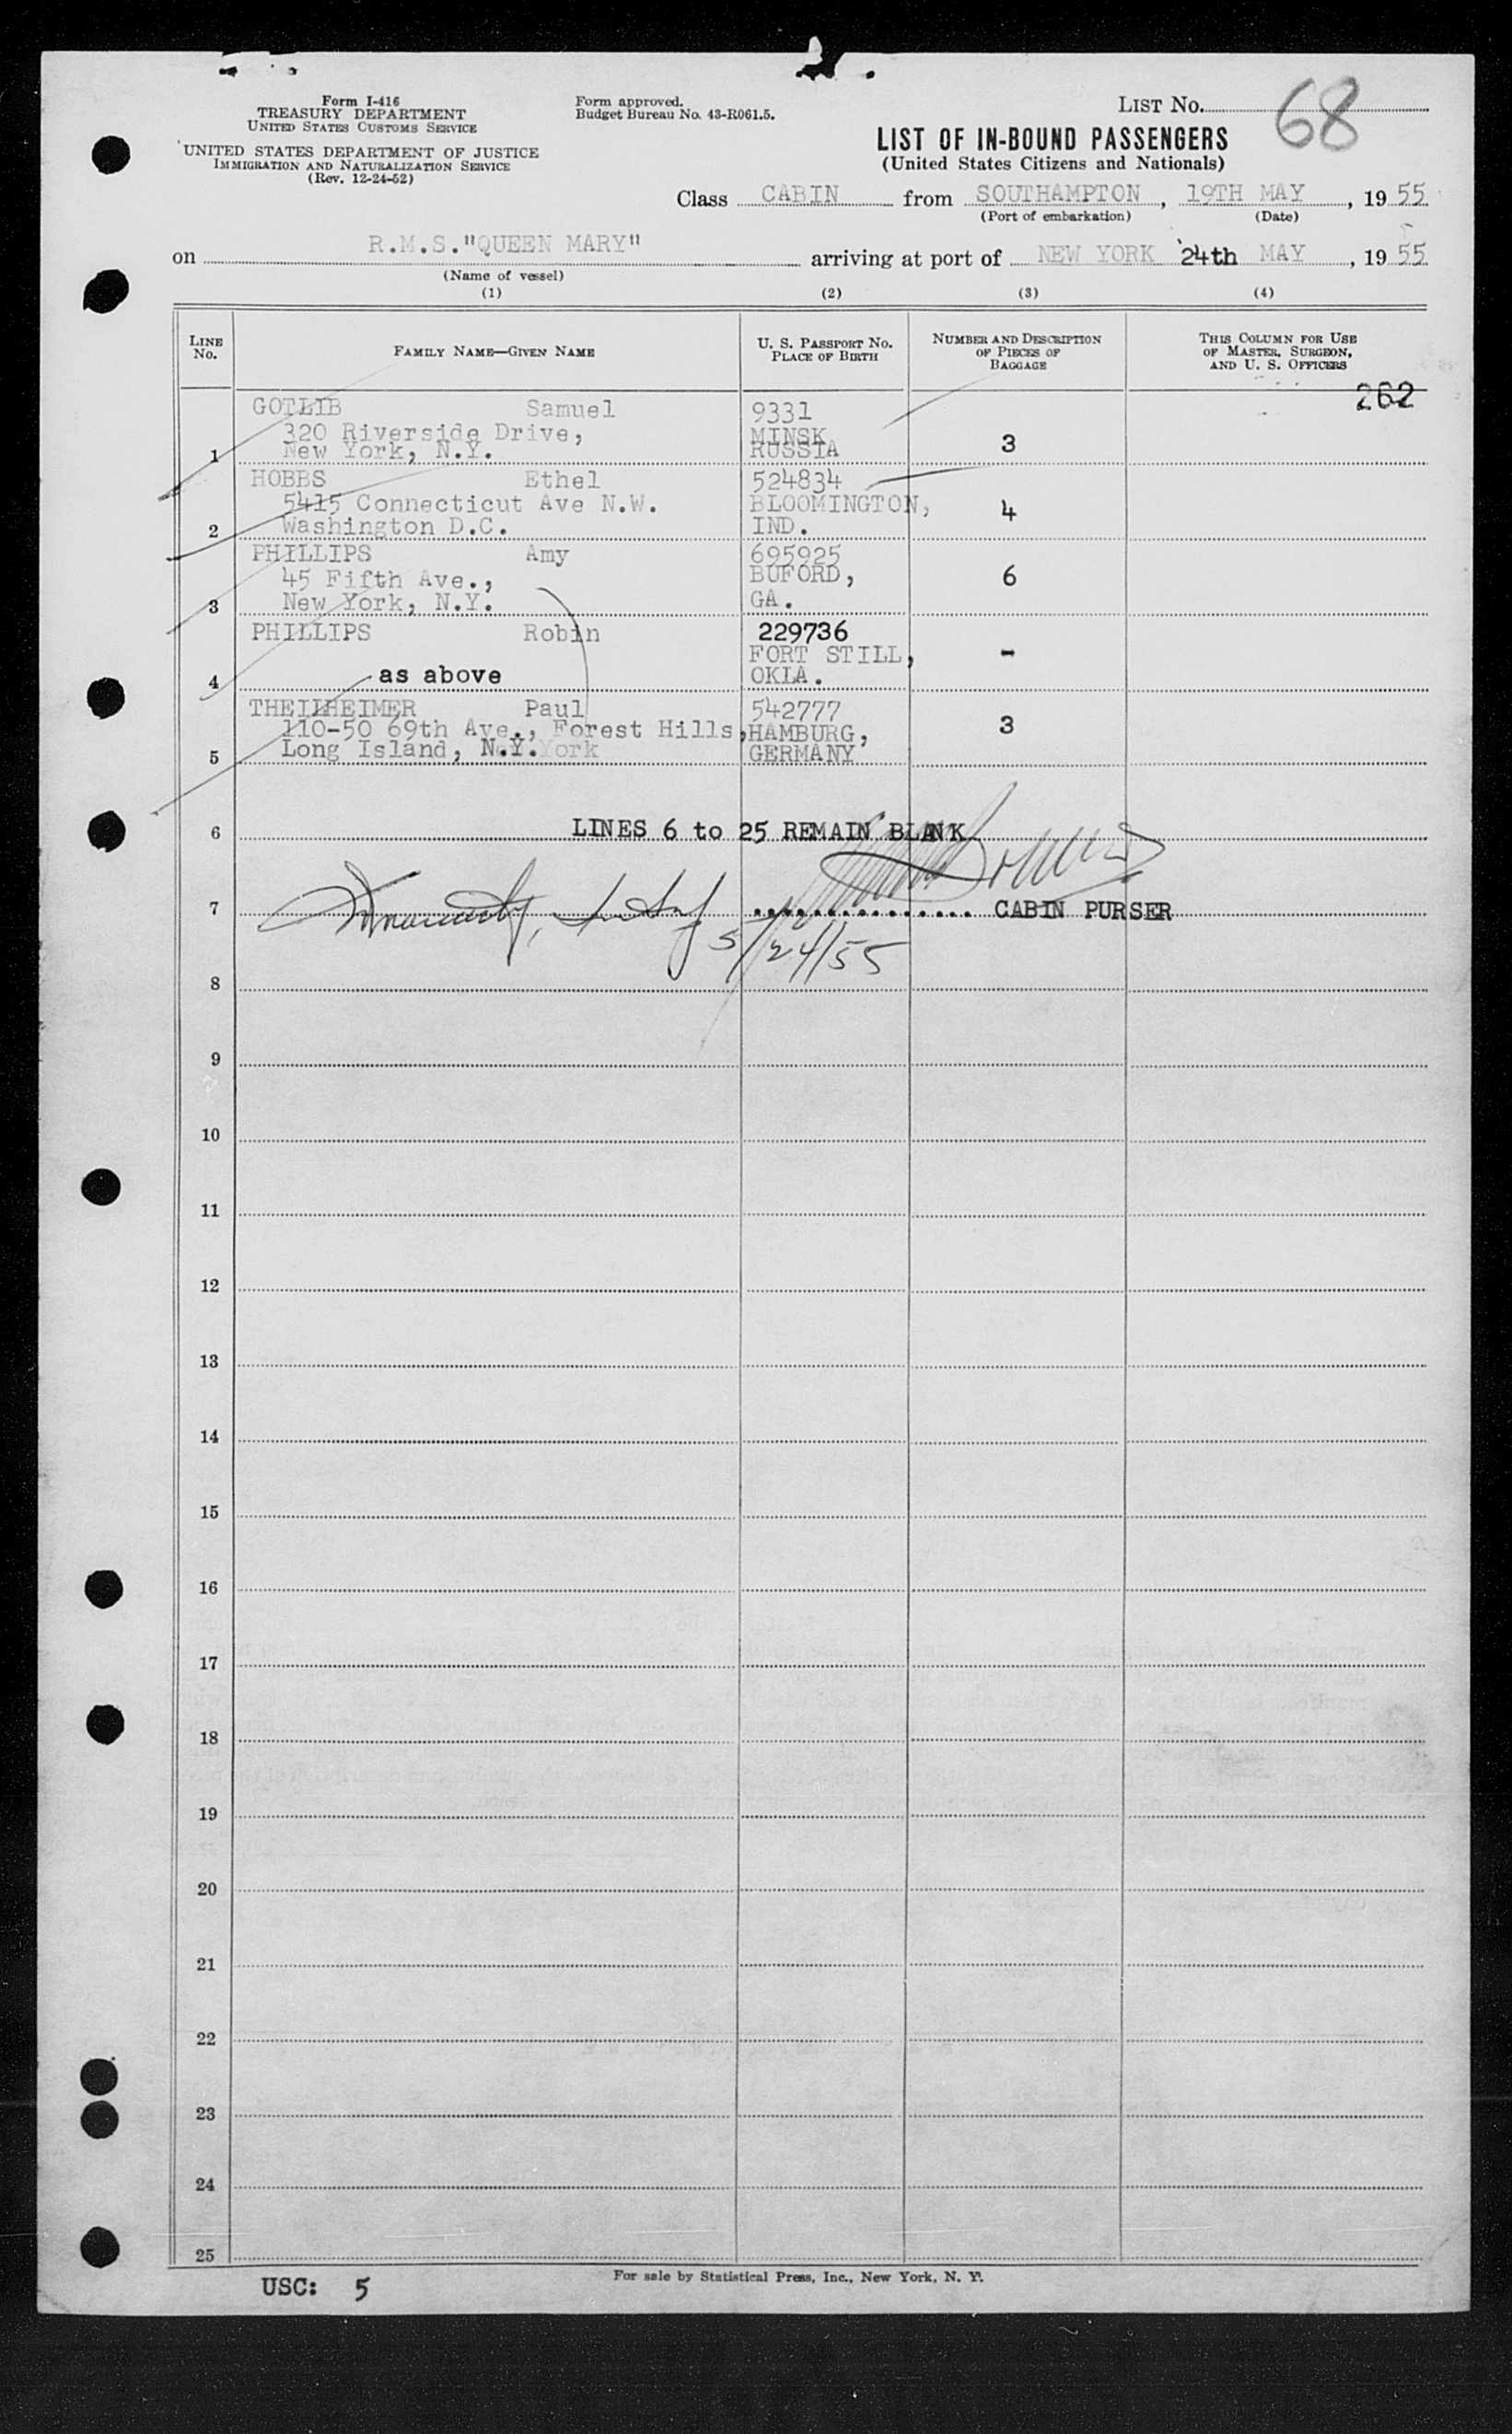 Form I-416
TREASURY DEPARTMENT
UNITED STATES CUSTOMS SERVICE
UNITED STATES DEPARTMENT OF JUSTICE
IMMIGRATION AND NATURALIZATION SERVICE
(Rev. 12-24-52)
Form approved.
Budget Bureau No. 43-R061.5.
LIST NO. 68
LIST OF IN-BOUND PASSENGERS
(United States Citizens and Nationals)
Class CABIN from SOUTHAMPTON, 19TH MAY, 1955
(Port of embarkation) (Date)
on R.M.S."QUEEN MARY" arriving at port of NEW YORK 24th MAY, 1955
(Name of vessel)
(1) (2) (3) (4)
LINE NO.
FAMILY NAME—GIVEN NAME
U. S. PASSPORT NO.
PLACE OF BIRTH
NUMBER AND DESCRIPTION
OF PIECES OF
BAGGAGE
THIS COLUMN FOR USE
OF MASTER, SURGEON,
AND U. S. OFFICERS
262
GOTLIB Samuel 9331
320 Riverside Drive, MINSK
1 New York, N.Y. RUSSIA 3
HOBBS Ethel 524834
5415 Connecticut Ave N.W. BLOOMINGTON, 4
2 Washington D.C. IND.
PHILLIPS Amy 695925
45 Fifth Ave., BUFORD, 6
3 New York, N.Y. GA.
PHILLIPS Robin 229736
FORT STILL, -
4 as above OKLA.
THEILHEIMER Paul 542777
110-50 69th Ave., Forest Hills, HAMBURG, 3
5 Long Island, N.Y. York GERMANY
6 LINES 6 to 25 REMAIN BLANK
7 ................ CABIN PURSER
5/24/55
8
9
10
11
12
13
14
15
16
17
18
19
20
21
22
23
24
25
USC: 5
For sale by Statistical Press, Inc., New York, N. Y.